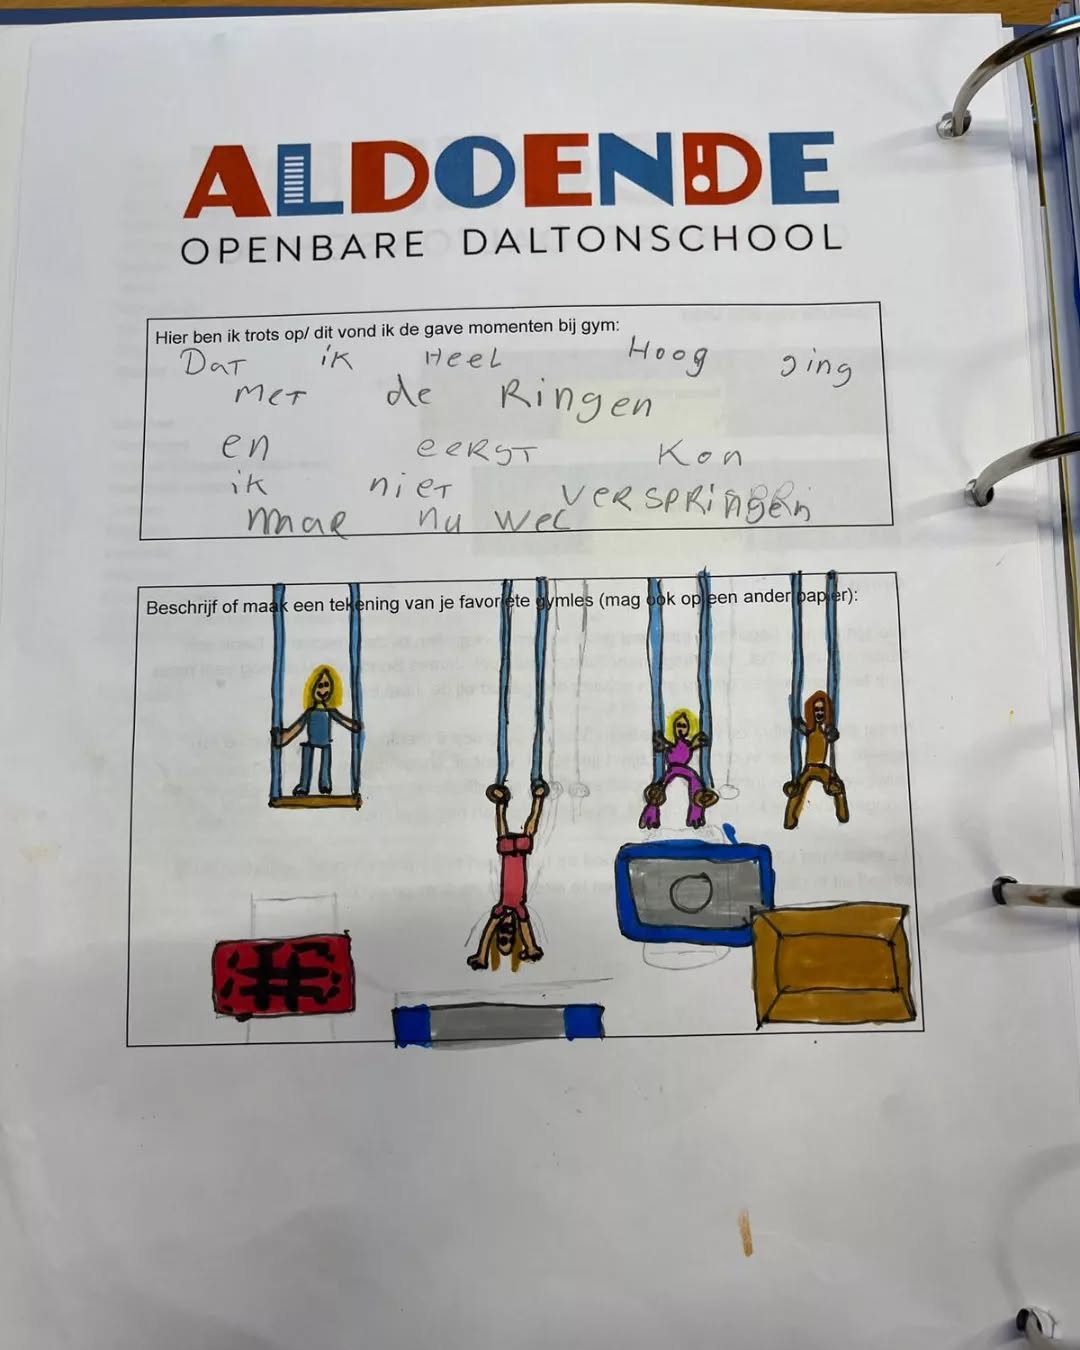 ALDOENDE
OPENBARE DALTONSCHOOL
Hier ben ik trots op/ dit vond ik de gave momenten bij gym:
Dat ik Heel Hoog ging
met de Ringen
en eerst kon
ik niet verspringen
maar nu wel
Beschrijf of maak een tekening van je favoriete gymles (mag ook op een ander papier):